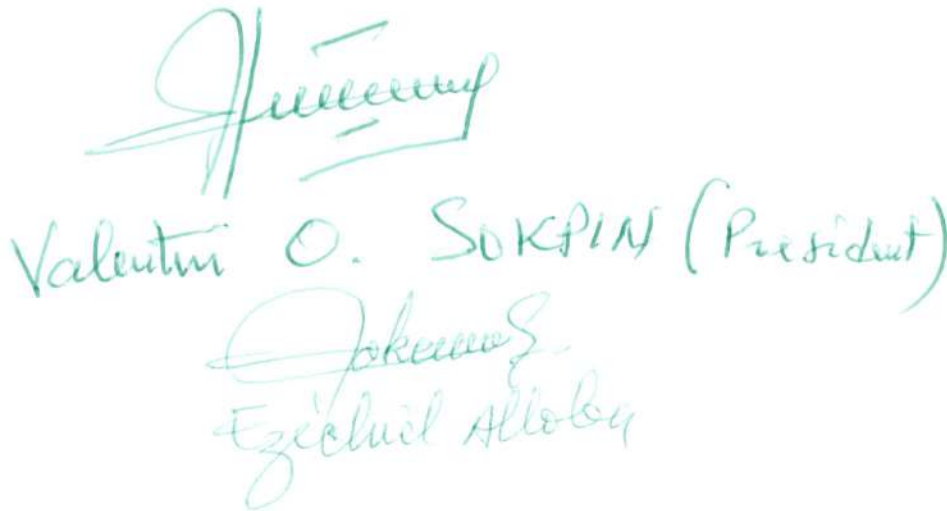 Valentin O. SOKPIN (President)
Ezéchiel Alloba